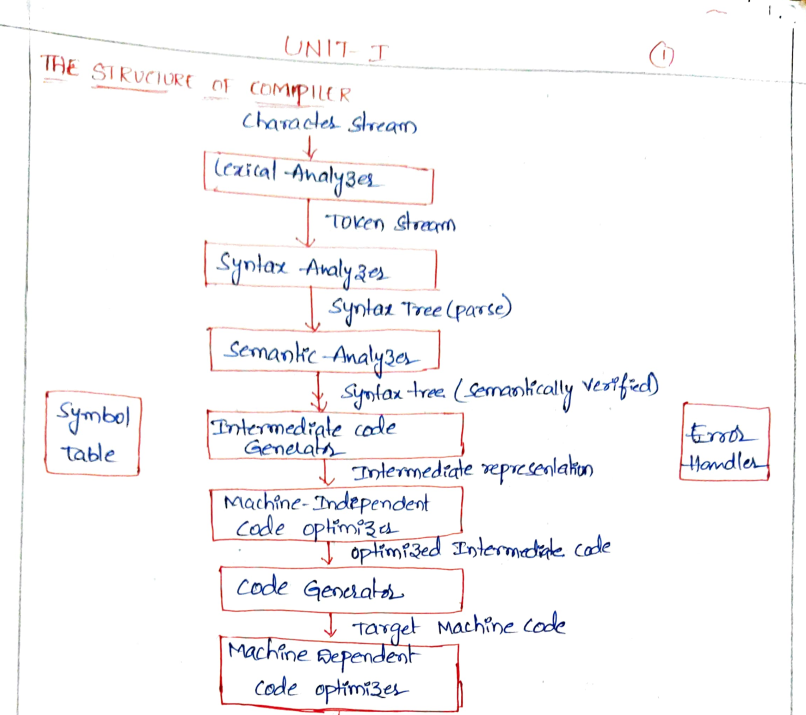 1.
UNIT-I
1
THE STRUCTURE OF COMPILER
Character stream
Lexical Analyzer
Token stream
Syntax Analyzer
Syntax Tree (parse)
Semantic Analyzer
Syntax tree (semantically verified)
Symbol
table
Intermediate code
Generator
Error
Handler
Intermediate representation
Machine-Independent
code optimizer
optimized Intermediate code
Code Generator
Target Machine code
Machine Dependent
code optimizer